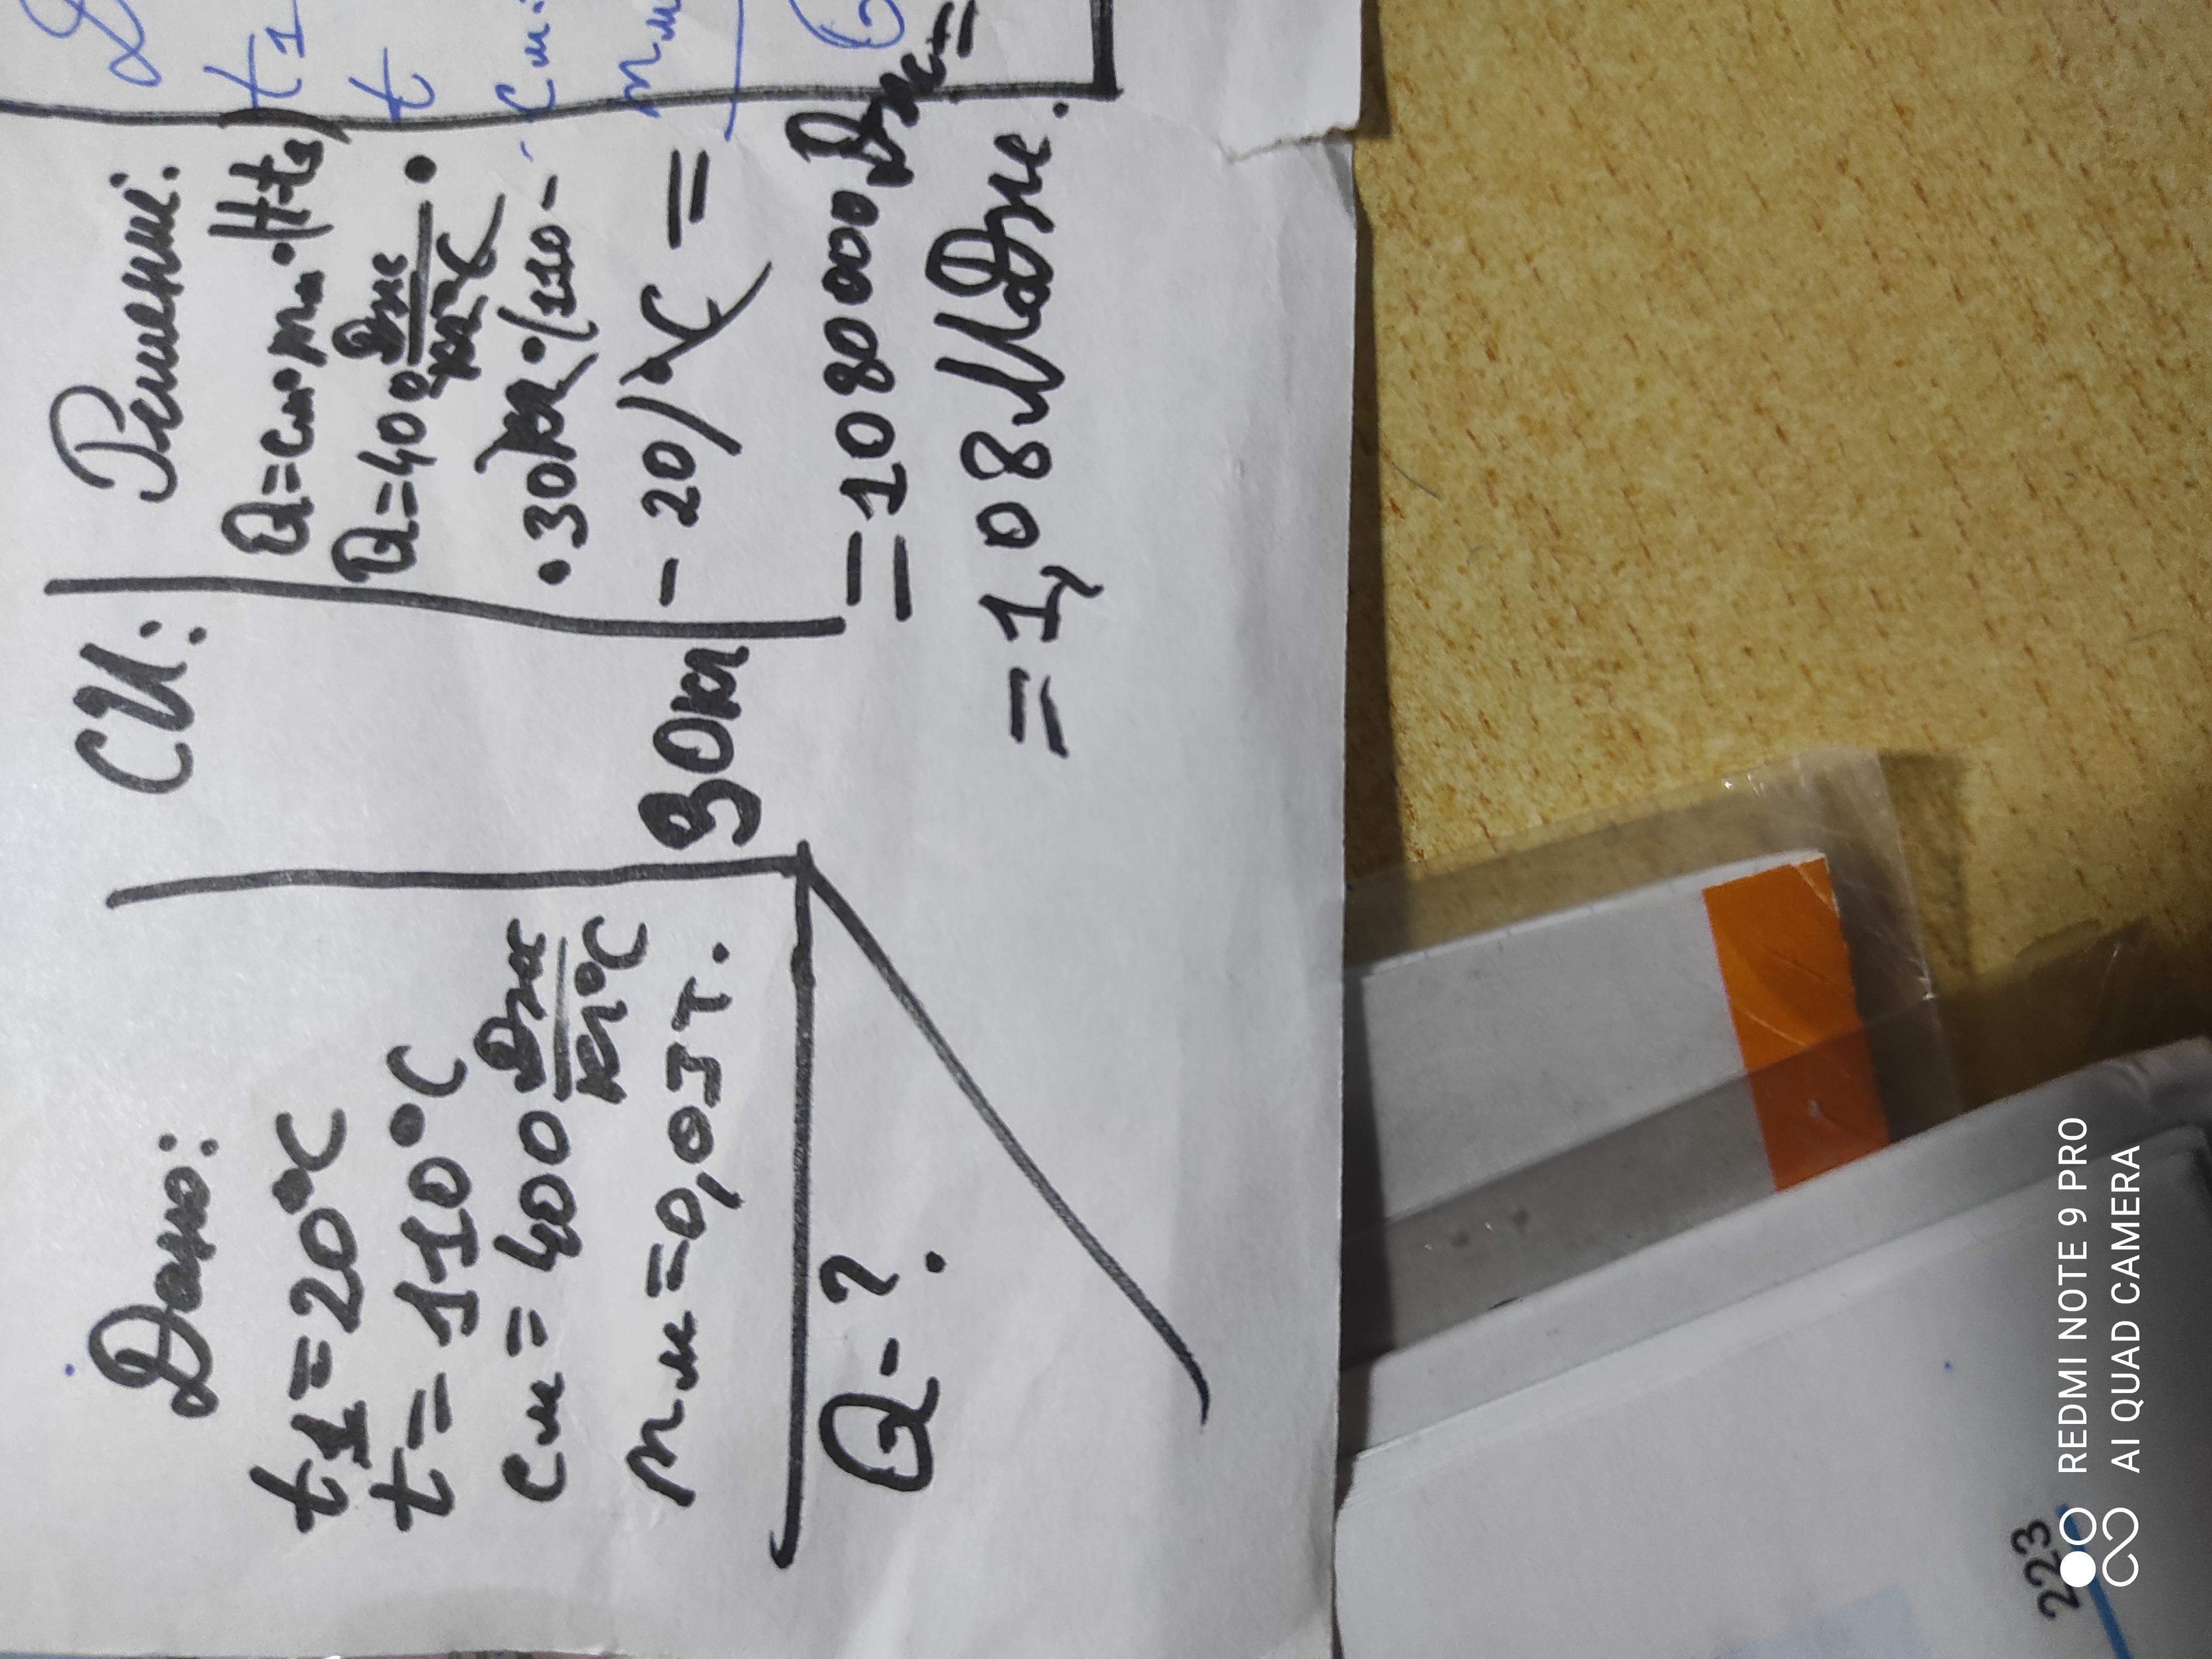 Дано:
t1=20°C
t=110°C
cм=400 Дж/кг°C
mм=0,03т.
Q-?
СИ:
30кг
Решение:
Q=cм·mм·(t-t1)
Q=400 Дж/кг°C ·
·30кг·(110-
-20)°C =
=1080000Дж=
=1,08МДж.
t1
t
cм
mм
223
REDMI NOTE 9 PRO
AI QUAD CAMERA